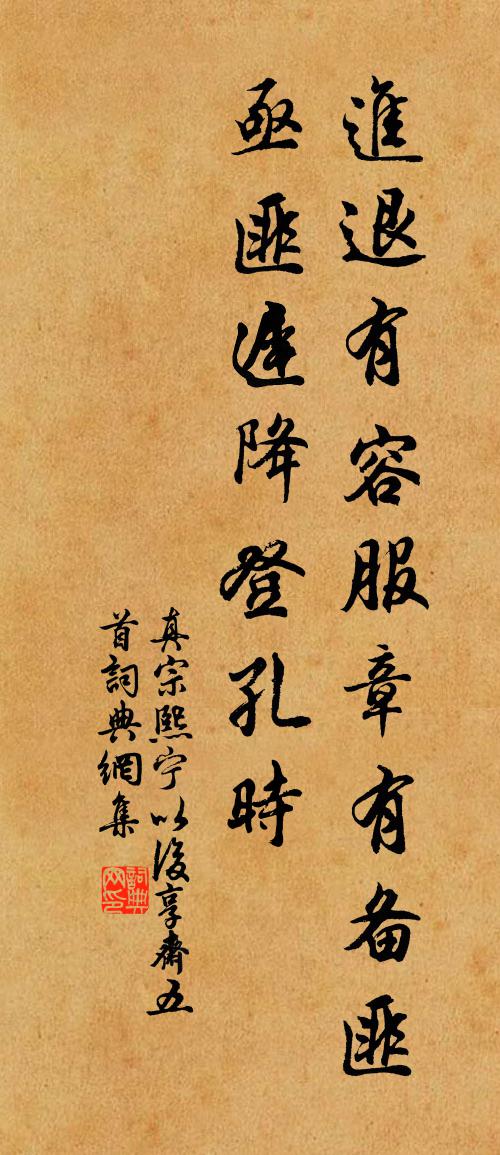 進退有容服章有备匪
亟匪遲降登孔時
真宗熙宁以後享齋五
首詞典網集
詞典网印